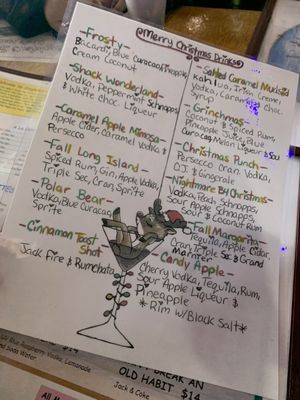 Merry Christmas Drinks
Frosty-
Bicardi, Blue Curacao, Pineapple,
Cream Coconut
-Shack Wonderland-
Vodka, Peppermint Schnapps
& White choc. Liqueur
-Caramel Apple Mimosa-
Apple Cider, Caramel Vodka &
Persecco
-Fall Long Island-
Spiced Rum, Gin, Apple Vodka,
Triple Sec, Cran, Sprite
-Polar Bear-
Vodka, Blue Curacao
Sprite
-Cinnamon Toast
Shot-
Jack Fire & Rumchata
-Salted Caramel Mudslide
Kahlua, Irish Creme,
Vodka, Caramel & Choc
Syrup
-Grinchmas-
Coconut & Spiced Rum,
Pineapple Juice, Blue
Curacao, Melon Liqueur & Sour
-Christmas Punch-
Persecco, Cran, Vodka,
O.J & Gingerale
-Nightmare B4 Christmas-
Vodka, Peach Schnapps,
Sour Apple Schnapps,
Sour & Coconut Rum
-Fall Margarita-
Tequila, Apple Cider,
Cran, Triple Sec & Grand
Marnier
-Candy Apple-
Cherry Vodka, Tequila, Rum,
Sour Apple Liqueur &
Pineapple
*Rim w/Black Salt*
UV Blue Raspberry Vodka, Lemonade
and Soda Water
BREAK AN
OLD HABIT $14
Jack & Coke
$14
All M